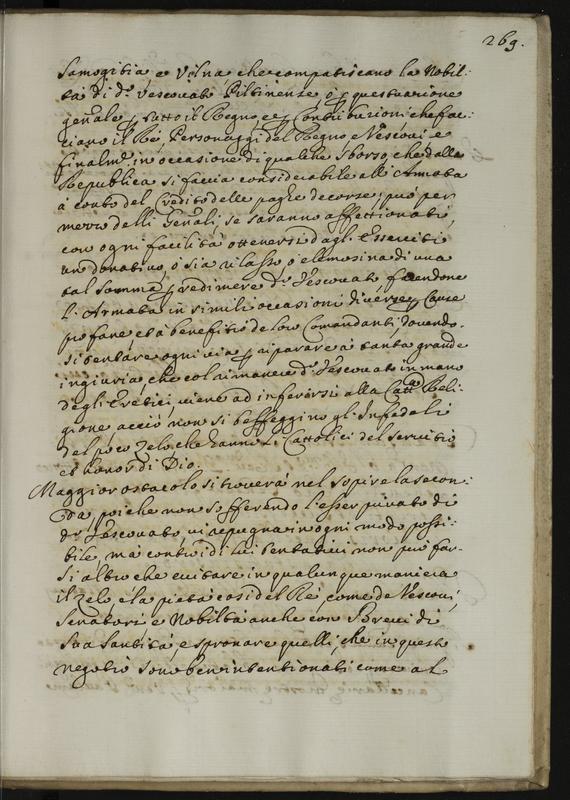 269.
Samogitia, e Vilna, che compatiscano la Nobil-
tà di d.º Vescovato Piltinense ò p questuatione
gen̄ale p tutto il Regno e p Contributioni che fac-
ciano il Rè, Personaggi del Regno e Vescovi e
finalm.te in occasione di qualche sborso, che dalla
Republica si faccia considerabile alle Armata
à conto del Credito delle paghe decorse; può per
mezzo delli Gen̄ali, se saranno affettionati,
con ogni facilità ottenersi dagl' Esserciti
un donativo, ò sia rilasso ò elemosina di una
tal somma p redimere d.º Vescovato, facendone
l' Armata in simili occasioni diverse p Cause
profane et à benefitio de loro Comandanti, dovendo-
si tentare ogni via p riparare à tanta grande
ingiuria che col rimanere d.º Vescovato in mano
degli Eretici, viene ad inferirsi alla Catt.ca Reli-
gione, acciò non si beffeggino gl' Infedeli
del poco zelo che hanno li Cattolici del servitio
et honor di Dio.
Maggior ostacolo si troverà nel sopire la secon-
da, poiche non sofferendo l'esser privato di
d.º Vescovato, vi repugna in ogni modo possi-
bile, ma contro i di lui tentativi non può far-
si altro che eccitare in qualunque maniera
il zelo, e la pietà così del Rè, come de Vescovi,
Senatori e Nobiltà anche con Brevi di
Sua Santità, e spronare quelli, che in questo
negotio sono ben intentionati come al